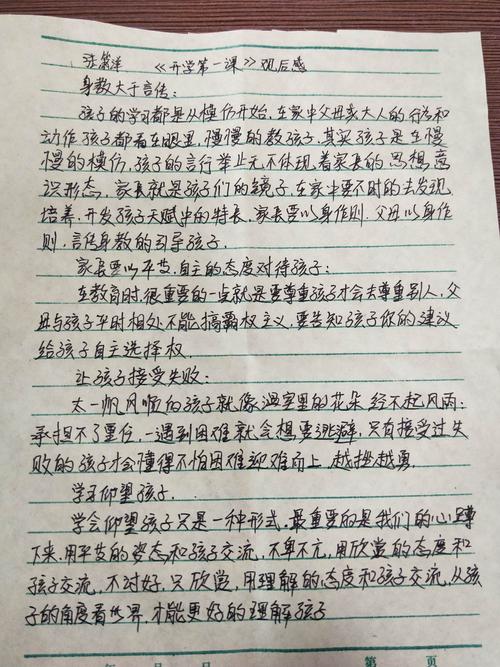 《开学第一课》观后感
身教大于言传:
孩子的学习都是从模仿开始,在家中父母亲大人的行为和
动作孩子都看在眼里,慢慢的教孩子,其实孩子是在慢
慢的模仿,孩子的言行举止无不体现着家长的思想意
识形态,家长就是孩子们的镜子,在家中要不时的去发现
培养,开发孩子天赋中的特长,家长要以身作则.父母以身作
则,言传身教的引导孩子.
家长要以平等.自主的态度对待孩子:
在教育时,很重要的一点就是要尊重孩子才会去尊重别人,父
母与孩子平时相处不能搞霸权主义,要告知孩子你的建议
给孩子自主选择权.
让孩子接受失败:
太一帆风顺的孩子就像温室里的花朵经不起风雨:
承担不了重任,一遇到困难就会想要逃避,只有接受过失
败的孩子才会懂得不怕困难迎难而上,越挫越勇.
学习仰望孩子.
学会仰望孩子只是一种形式,最重要的是我们的心蹲
下来,用平等的姿态和孩子交流,不卑不亢,用欣赏的态度和
孩子交流,不讨好,只欣赏,用理解的态度和孩子交流,从孩
子的角度看世界,才能更好的理解孩子
年 月 日 第 页